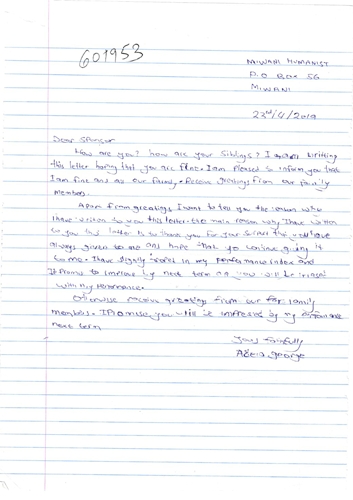 601953
MIWANI HUMANIST
P.O BOX 56
MIWANI
23rd/9/2019
Dear Sponsor
How are you? how are your siblings? I am writting
this letter hoping that you are fine. I am pleased to inform you that
I am fine and as our family. Receive greetings from our family
members.
Apart from greetings, I want to tell you the reason why
I have written to you this letter. the main reason why I have written
to you this letter is to thank you for your support that you have
always given to me and hope that you continue giving it
to me. I have slightly in my performance index and
I promise to improve by next term and you will be
with my performance.
Otherwise receive greetings from our family
members. I promise you will be impressed by my performance
next term
Yours faithfully
George